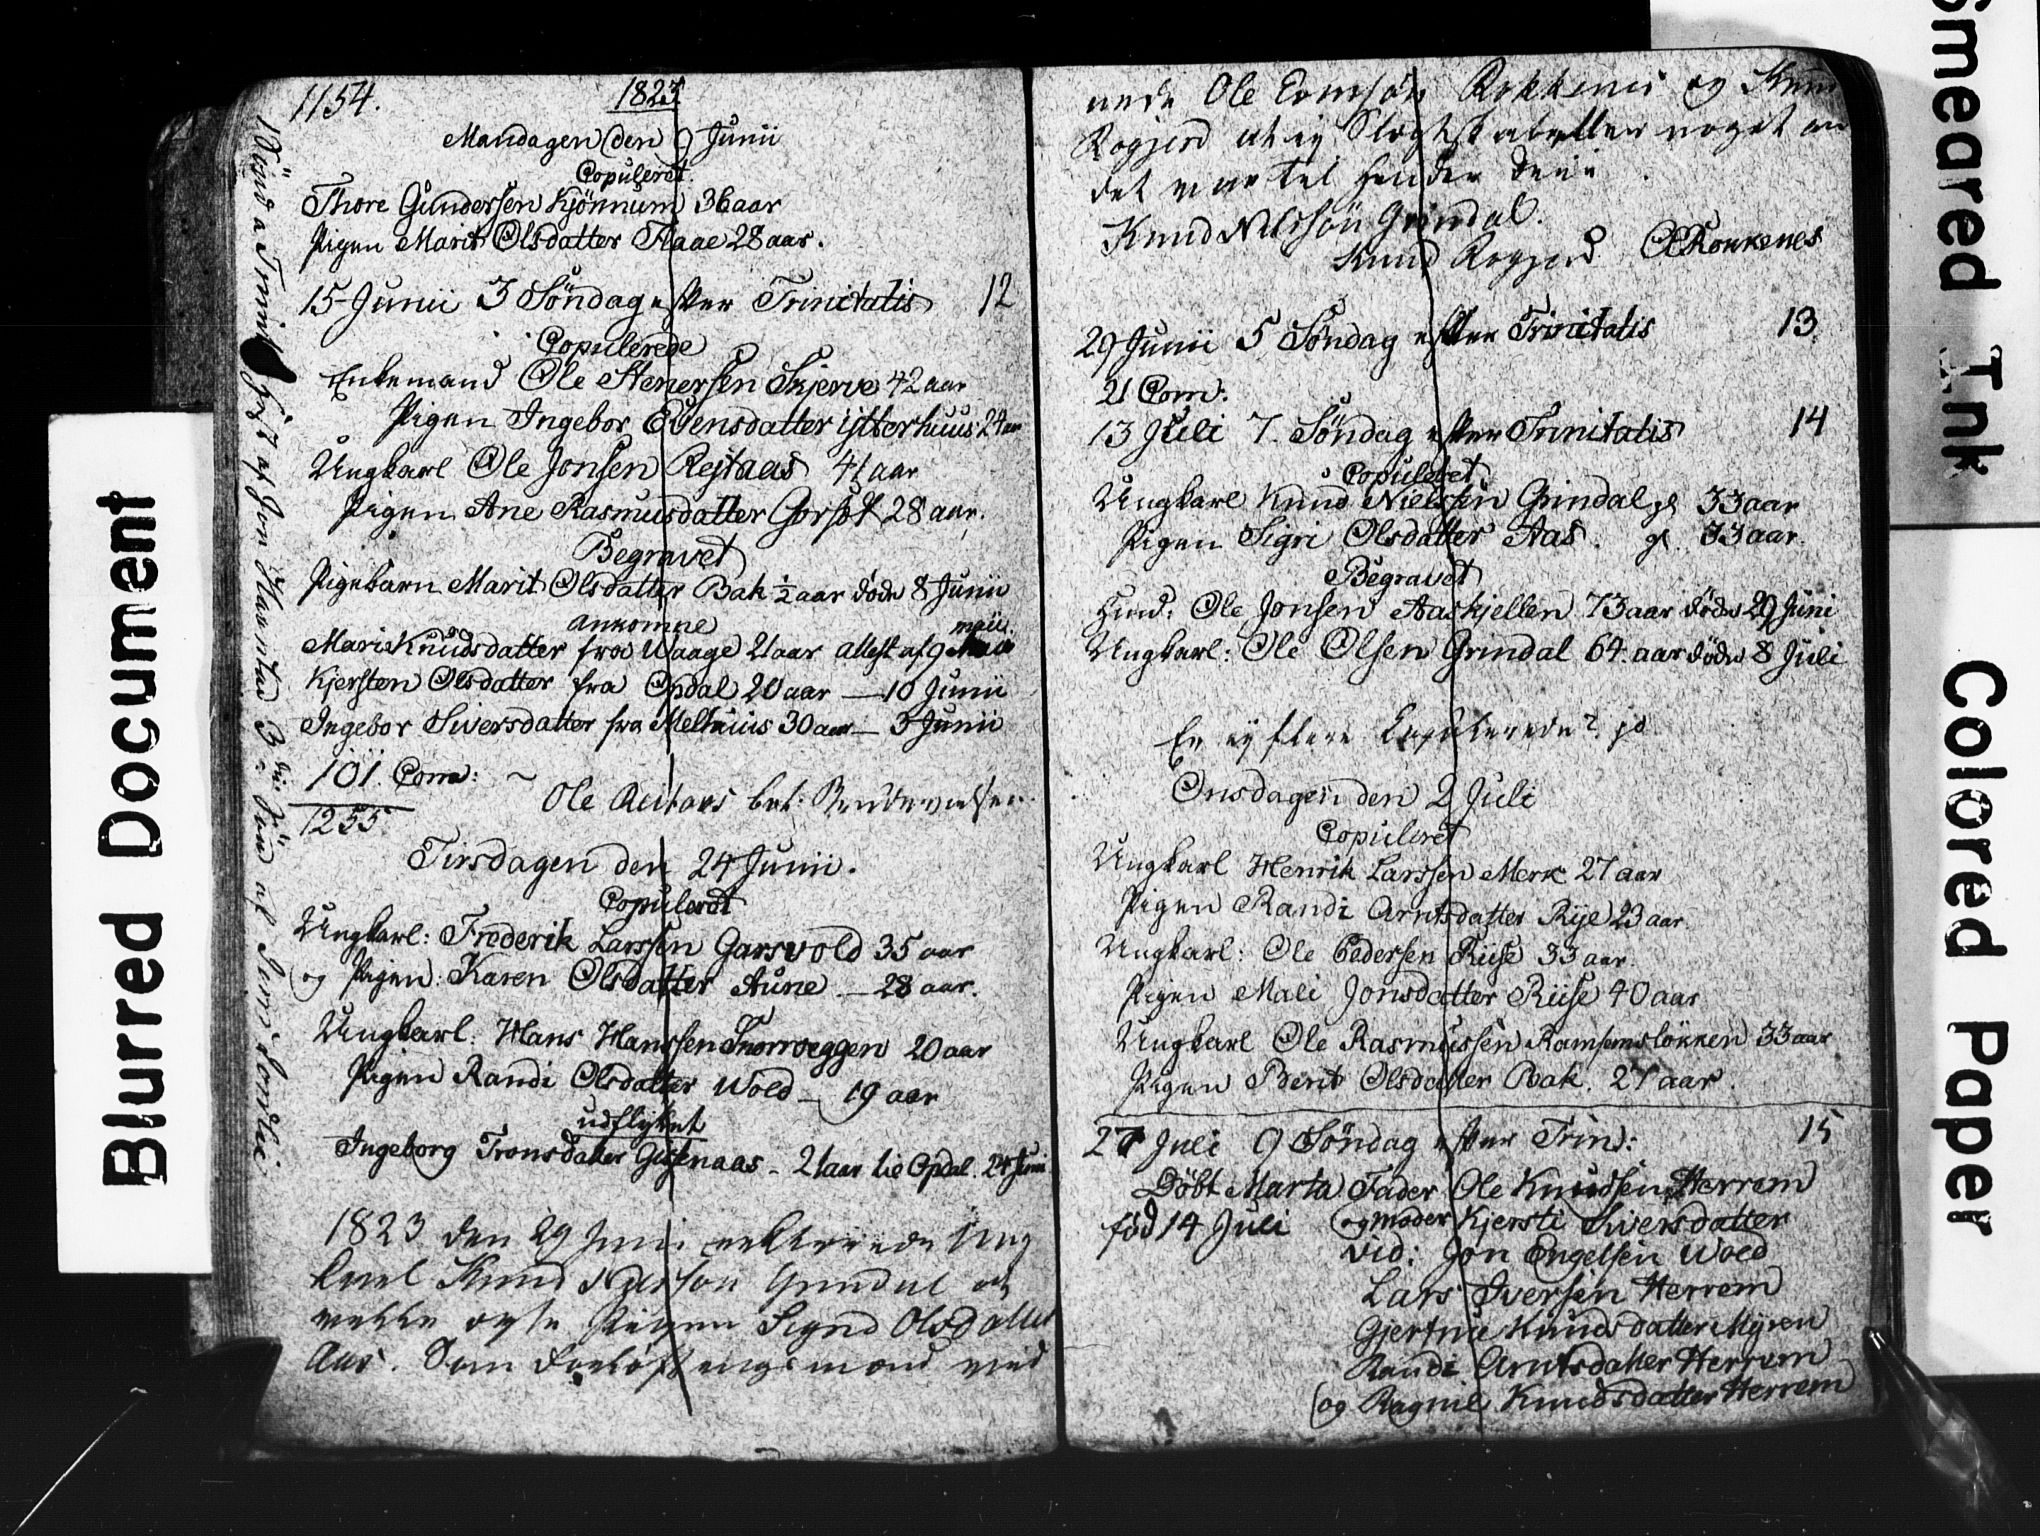 1154. 1823
Mandagen den 9 Junii
Copuleret.
Thore Gundersen Kjönnum 36 aar
Pigen Marit Olsdatter Flaae 28 aar.
15 Junii 3 Söndag efter Trinitatis 12
Copulerede
Enkemand Ole Stenersen Skjerve 42 aar
Pigen Ingebor Evensdatter ytterhuus 24 aar
Ungkarl Ole Jonsen Rejtaas 41 aar
Pigen Ane Rasmusdatter Gorset 28 aar.
Begravet
Pigebarn Marit Olsdatter Bak ½ aar döde 8 Junii
ankomne
Marit Knudsdatter fra Waage 21 aar attest af 9 maii
Kjersten Olsdatter fra Opdal 20 aar — 10 Junii
Ingebor Siversdatter fra Melhuus 30 aar — 3 Junii
101. Com: ~
Ole Reitaas bet:
1255.
Tirsdagen den 24 Junii.
Copuleret
Ungkarl: Frederik Larssen Garsvold 35 aar
og Pigen: Karen Olsdatter Aune — 28 aar.
Ungkarl: Hans Hanssen Snorroeggen 20 aar
Pigen Randi Olsdatter Wold — 19 aar
udflyttet
Ingeborg Tronsdatter Gisenaas - 21 aar til Opdal. 24 Juni
1823 den 29 Juni Ung
karl Knud Grindal at
ville egte Pigen Signd Olsdatter
Aas. Som Forlöftningsmænd vid
af Jon
nede Ole Rokkenes og Knud
Rogjerd at ej Slegtskab eller noget an
det var til hinder derie.
Knud Nilssön Grindal.
Knud Rogjerd ORokkenes
29 Junii 5 Söndag efter Trinitatis 13.
21 Com:
13 Juli 7. Söndag efter Trinitatis 14
Copuleret
Ungkarl Knud Nielssen Grindal gl 33 aar
Pigen Sigri Olsdatter Aas. gl. 33 aar.
Begravet
Huusd: Ole Jonsen Aaskjellen 73 aar döde 29 Juni
Ungkarl: Ole Olsen Grindal 64. aar döde 8 Juli
Er ej flere Copulerede? jo
Onsdagen den 2 Juli
Copuleret
Ungkarl Henrik Larssen Merk 27 aar
Pigen Randi Arntsdatter Rye 23 aar.
Ungkarl: Ole Pedersen Riise 33 aar.
Pigen Mali Jonsdatter Riise 40 aar
Ungkarl Ole Rasmussen Ramsemslökken 33 aar
Pigen Berit Olsdatter Bak. 27 aar.
27 Juli 9 Söndag efter Trin: 15
Döbt Marta Fader Ole Knudsen Herrem
föd 14 Juli og moder Kjersti Siversdatter
vid: Jon Engelsen Wold
Lars Iversen Herrem
Gjertrue Knudsdatter Myren
Randi Arntsdatter Herrem
og Ragnil Knudsdatter Herrem
Blurred Document
Smeared Ink
Colored Paper